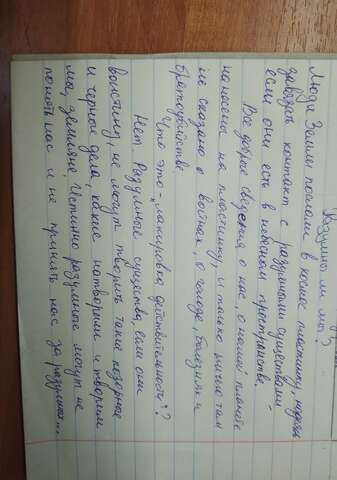 Разумны ли мы?
Люди Земли послали в космос пластинку, надеясь
завязать контакт с разумными существами -
если они есть в небесном пространстве.
Все добрые сведения о нас, о нашей планете
нанесены на пластинку, и только ничего там
не сказано о войнах, о голоде, болезнях и
братоубийстве.
Что это - "лакировка действительности"?
Нет. Разумные существа, если они
воистину, не могут творить такие позорные
и черные дела, какие натворили и творим
мы, земляне. Истинно разумные могут не
понять нас и не принять нас за разумных...